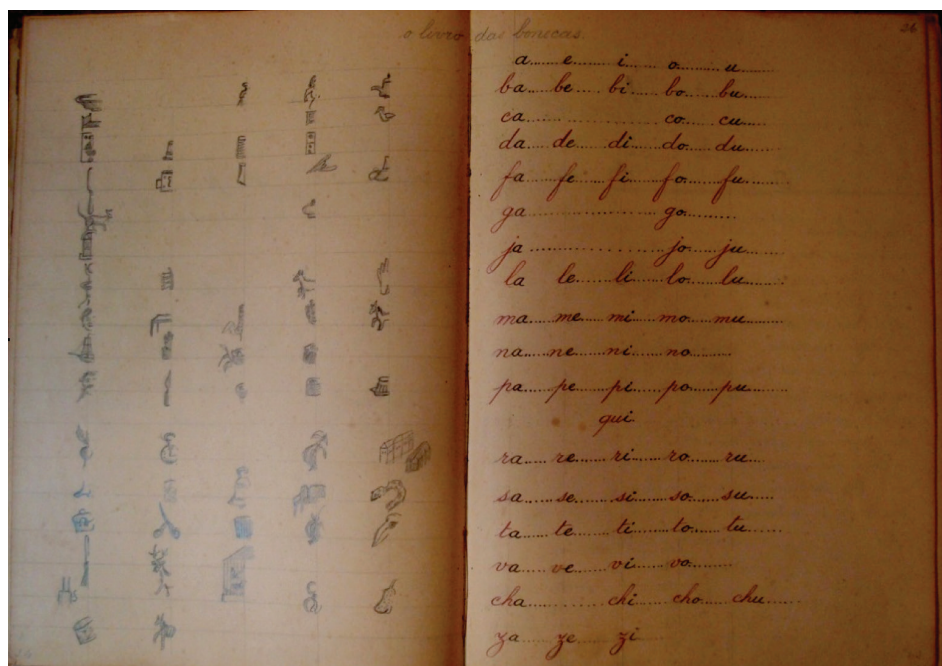 o livro das bonecas.
26
a........e........i........o........u........
ba.....be.....bi.....bo.....bu.......
ca.......................co......cu......
da.....de.....di.....do.....du.......
fa......fe......fi......fo......fu.......
ga.......................go..........
ja.......................jo......ju.......
la......le......li......lo......lu.......
ma.....me.....mi.....mo.....mu.......
na.....ne.....ni.....no.........
pa.....pe.....pi.....po.....pu.......
qui
ra.....re.....ri.....ro.....ru.......
sa.....se.....si.....so.....su.......
ta......te......ti......to......tu.......
va.....ve.....vi.....vo.........
cha...........chi.....cho.....chu.......
za......ze......zi